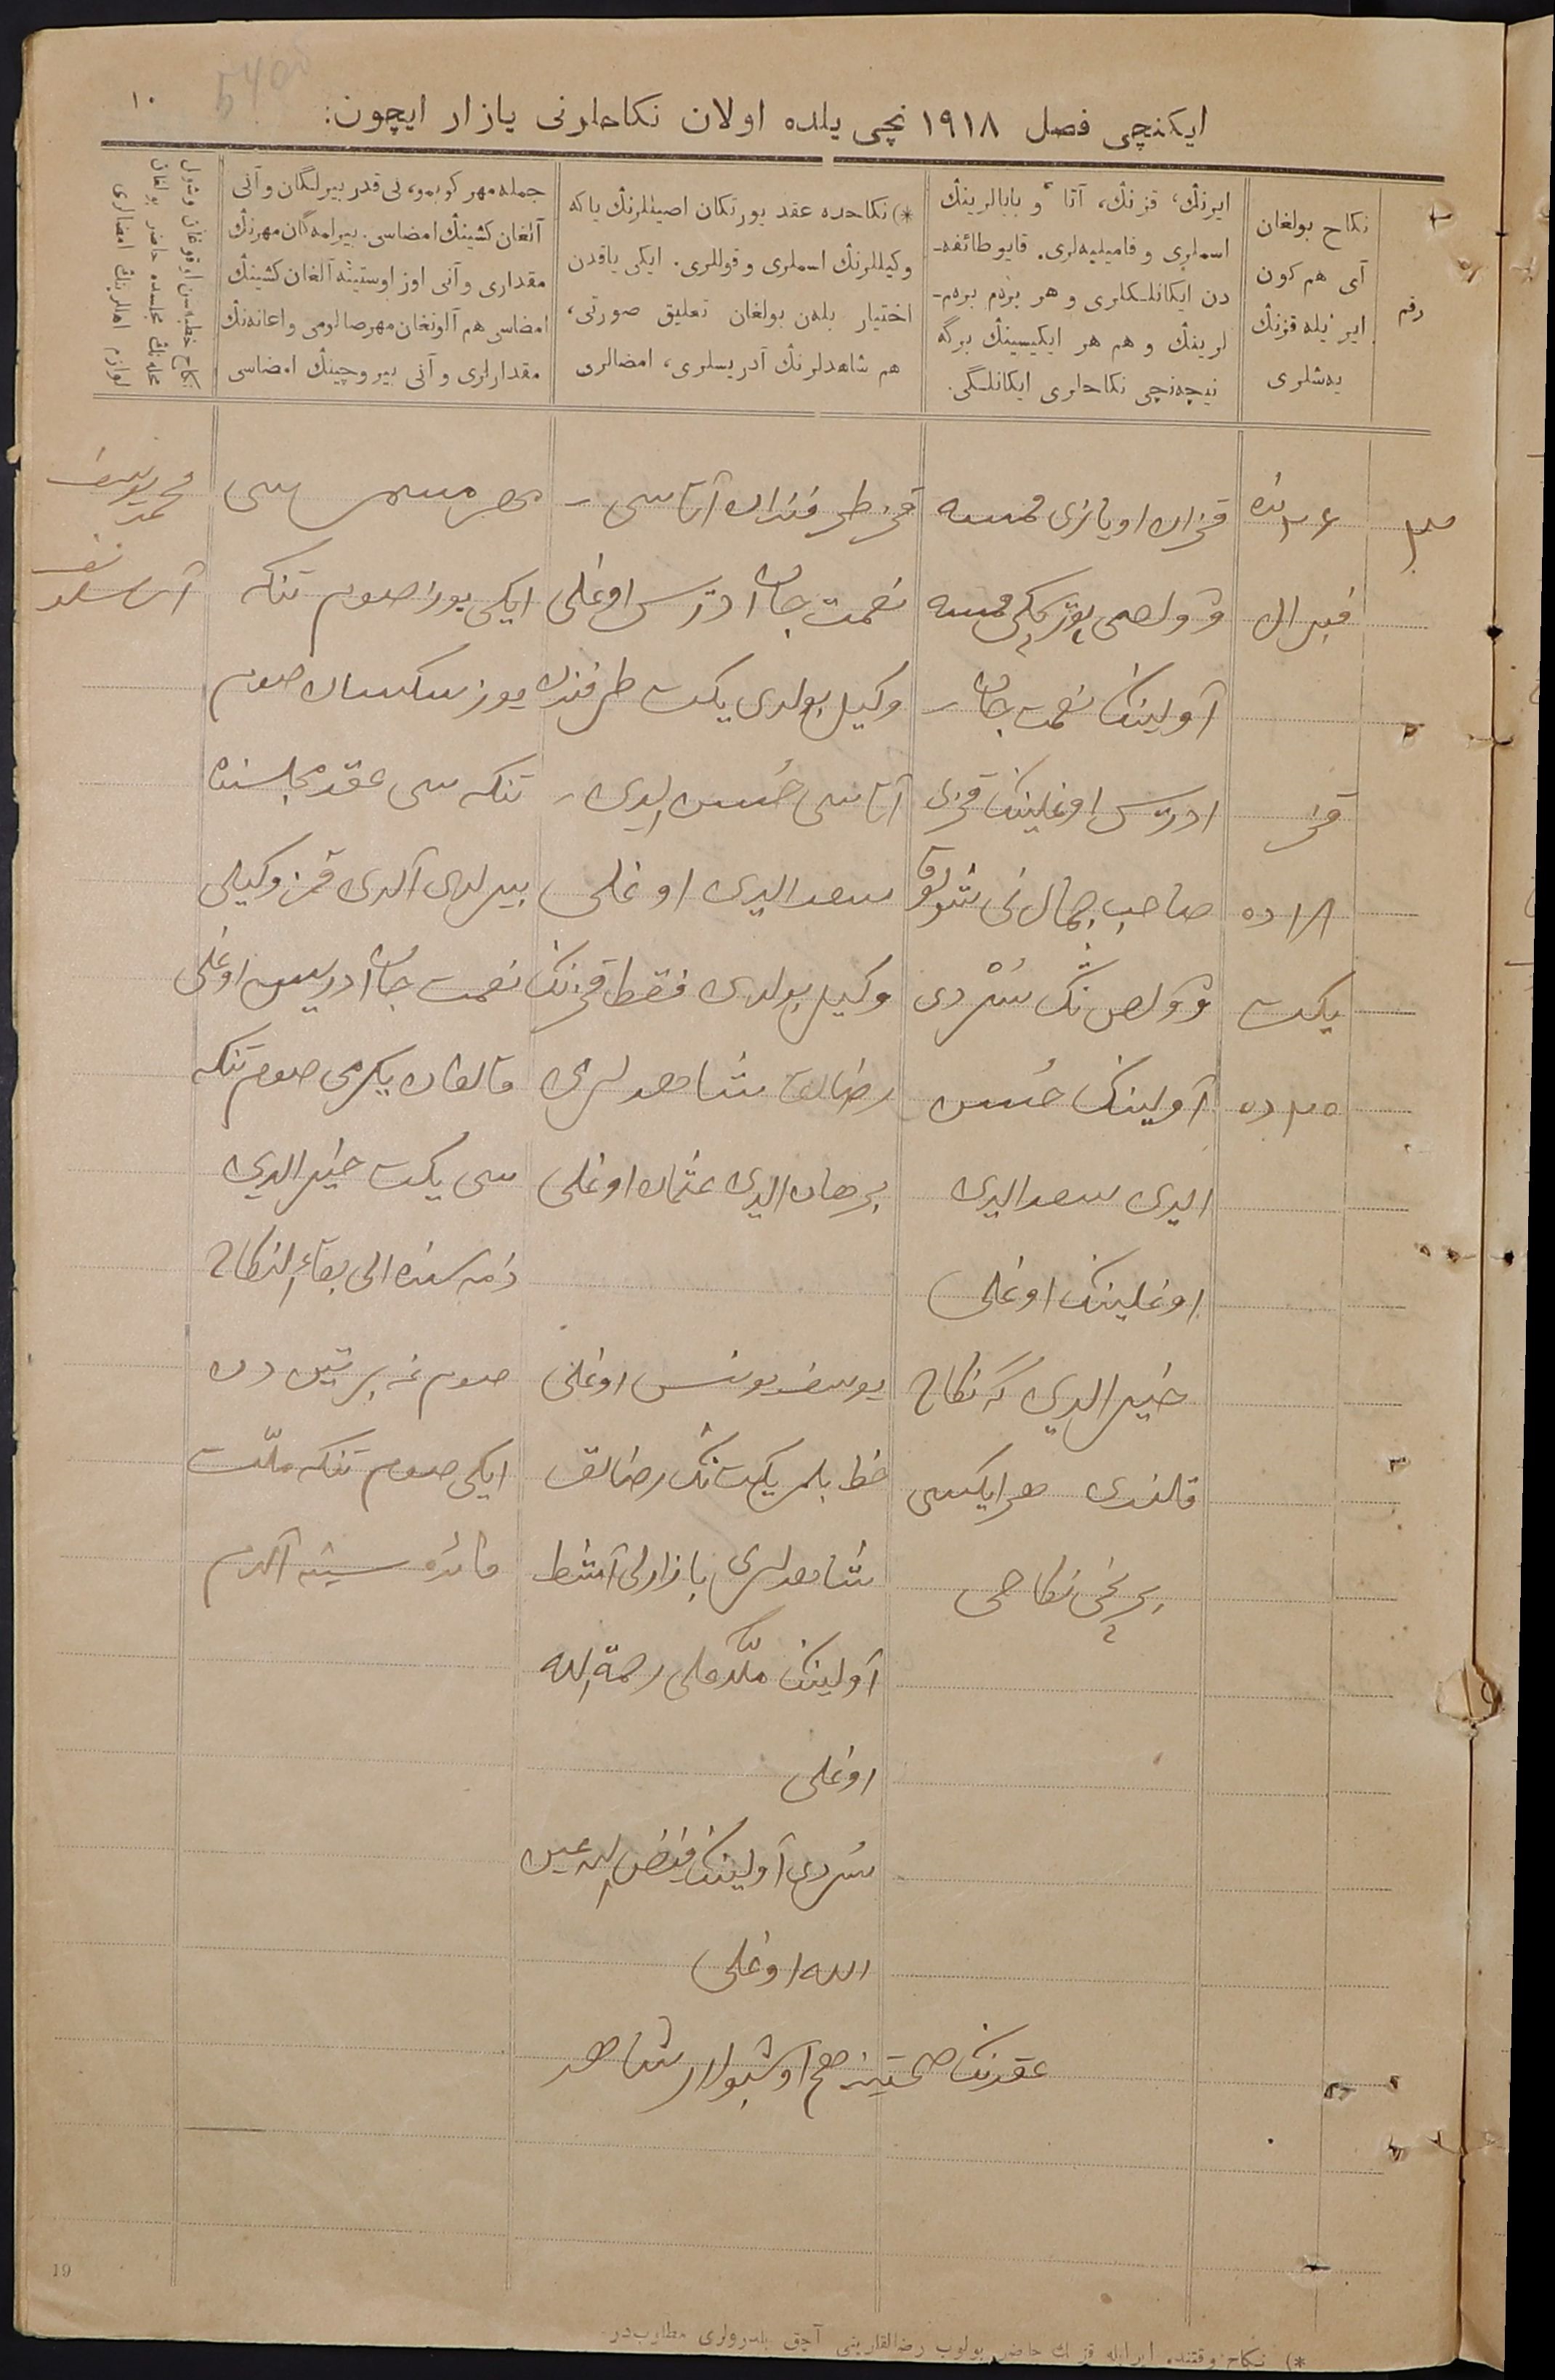 5400
١٠
ایکنچی فصل ١٩١٨ نچی یلده اولان نکاحلرنی یازار ایچون:
رقم
نکاح بولغان
آی هم کون
ایر یله قزنڭ
یه‌شلری
ایرنڭ، قزنڭ، آتا و بابالرینڭ
اسملری و فامیلیه‌لری. قایو طائفه‌ـ
دن ایکانلـکلری و هر بردم بردم‌ـ
لرینڭ و هم هر ایکیسینڭ برگه
نیچه‌نچی نکاحلری ایکانلـگی.
*) نکاحده عقد یورتکان اصیللرنڭ یا که
وکیللرنڭ اسملری و قوللری. ایکی یاقدن
اختیار بلەن بولغان تعلیق صورتی،
هم شاهدلرنڭ آدریسلری، امضالری
جمله مهر کوبمو، نی قدر بیرلگان و آنی
آلغان کشینڭ امضاسی. بیرلمه‌گان مهرنڭ
مقداری و آنی اوز اوستینه آلغان کشینڭ
امضاسی هم آلونغان مهر صالومی و اعانه‌نڭ
مقدارلری و آنی بیروچینڭ امضاسی
نکاح خطبه‌سن اوقوغان و شول
محله‌نڭ مجلسده حاضر بولغان
لوازم اهللرینڭ امضالری
٣
٢٤ نده
فبرال
قز
١٨ ده
یکت
٢٥ ده
قزان اویازی
آولینڭ نعمت جان
ادریس اوغلینڭ قزی
صاحب جمال نی
آولینڭ حسن
الدین سعد الدین
اوغلینڭ اوغلی
خیر الدین گه نکاح
قلندی هر ایکیسی
برنچی نکاحی
قز طرفندان آتاسی
نعمت جان ادریس اوغلی
وکیل بولدی یکت طرفندن
آتاسی حسن الدین
سعد الدین اوغلی
وکیل بولدی فقط قزنڭ
رضالق شاهدلری
برهان الدین عثمان اوغلی
یوسف یونس اوغلی
خط بلمر یکت نڭ رضالق
شاهدلری بازارلی
آولینڭ رحمة الله
اوغلی
آولینڭ
الله اوغلی
عقدنڭ صحتینه هم اوشبولار شاهد
مهر مسمی سی
ایکی یوز صوم تنکه
یوز سکسان صوم
تنکه سی عقد مجلسنده
بیرلدی آلدی قز وکیلی
نعمت جان ادریس اوغلی
قالغان یکرمی صوم تنکه
سی یکت خیر الدین
ذمه سنده الی بقاء النکاح
صوم غه بر تین دن
ایکی صوم تنکه ملت
فائده سینه آلدم
محمد یوسف
19
*) نکاح وقتنده ایر ایله قزنڭ حاضر بولوب رضالقلارینی آچق بلدرولری مطلوبدر.